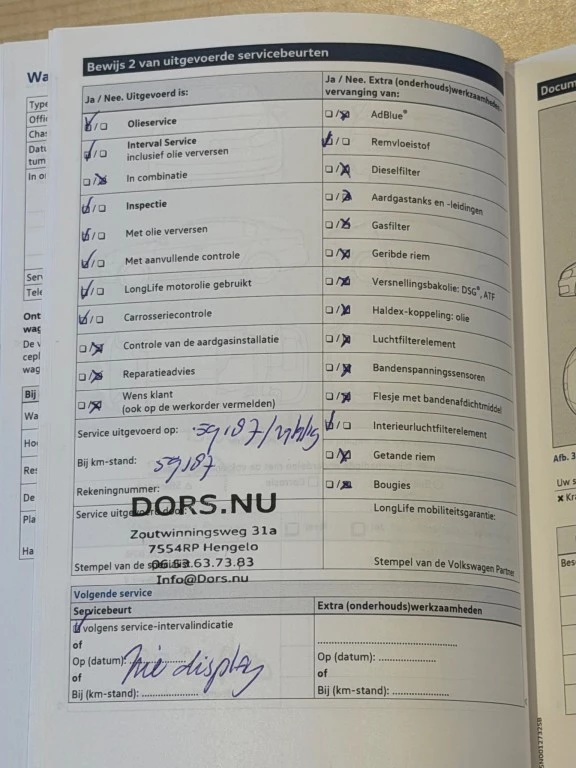 Wa
Type
Offic
Chas
Datu
tum
In o
Serv
Tele
Ont
wag
De v
cepl
wag
Bij
Wa
Hoe
Res
De
Pla
Ha
Bewijs 2 van uitgevoerde servicebeurten
Ja / Nee. Uitgevoerd is:
Olieservice
Interval Service
inclusief olie verversen
In combinatie
Inspectie
Met olie verversen
Met aanvullende controle
LongLife motorolie gebruikt
Carrosseriecontrole
Controle van de aardgasinstallatie
Reparatieadvies
Wens klant
(ook op de werkorder vermelden)
Service uitgevoerd op:
Bij km-stand:
Rekeningnummer:
Service uitgevoerd door:
DORS.NU
Zoutwinningsweg 31a
7554RP Hengelo
06.53.63.73.83
Stempel van de specialist
Info@Dors.nu
Ja / Nee. Extra (onderhouds)werkzaamheden,
vervanging van:
AdBlue®
Remvloeistof
Dieselfilter
Aardgastanks en -leidingen
Gasfilter
Geribde riem
Versnellingsbakolie: DSG®, ATF
Haldex-koppeling: olie
Luchtfilterelement
Bandenspanningssensoren
Flesje met bandenafdichtmiddel
Interieurluchtfilterelement
Getande riem
Bougies
LongLife mobiliteitsgarantie:
Stempel van de Volkswagen Partner
Volgende service
Servicebeurt
volgens service-intervalindicatie
of
Op (datum): ..................
of
Bij (km-stand): ....................
zie display
Extra (onderhouds)werkzaamheden
Op (datum): ....................
of
Bij (km-stand): ....................
Docum
Afb. 3
Uw s
Kra
Besc